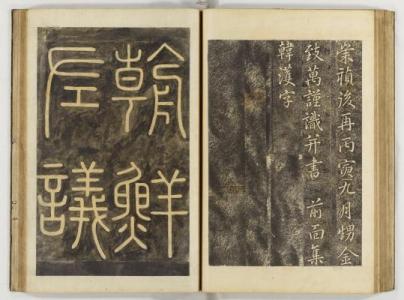 崇禎後再丙寅九月甥金
致萬謹識并書 前面集
韓濩字
朝鮮
左議